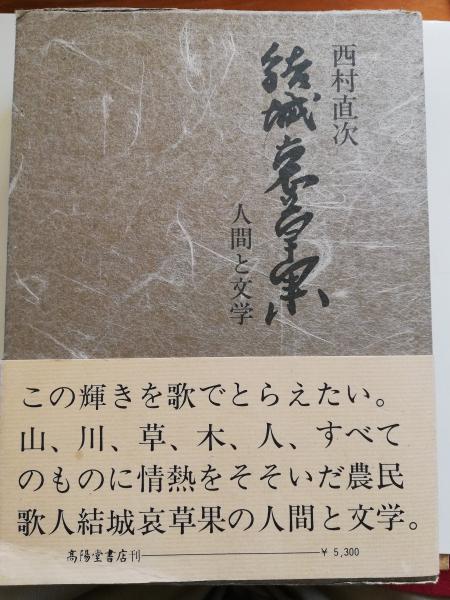 西村直次
結城哀草果
人間と文学
この輝きを歌でとらえたい。
山、川、草、木、人、すべて
のものに情熱をそそいだ農民
歌人結城哀草果の人間と文学。
高陽堂書店刊 ¥5,300